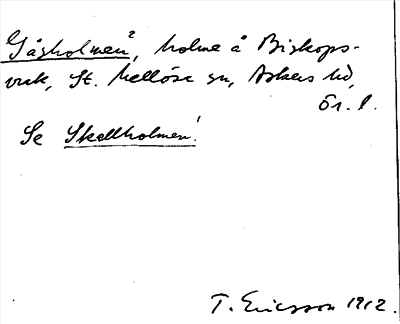 Gåsholmen², holme å Biskops-
vik, St. Mellösa sn, Askers hd,
Ör. l.
Se Skellholmen!
T. Ericsson 1912.